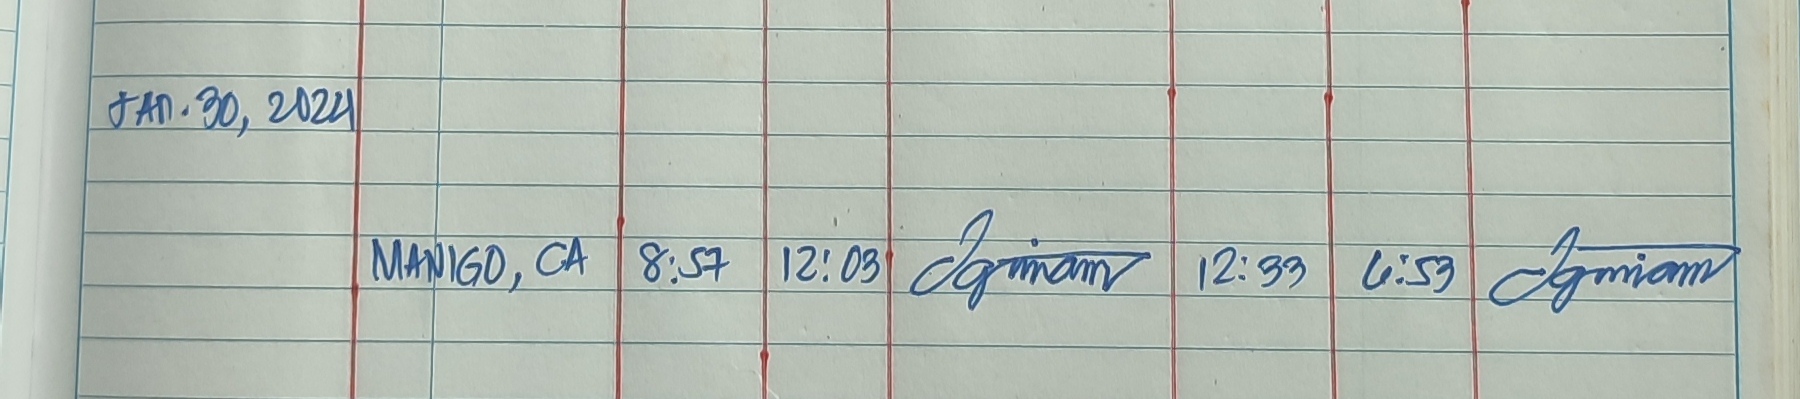 JAN. 30, 2024
MANIGO, CA 8:57 12:03 12:33 6:53